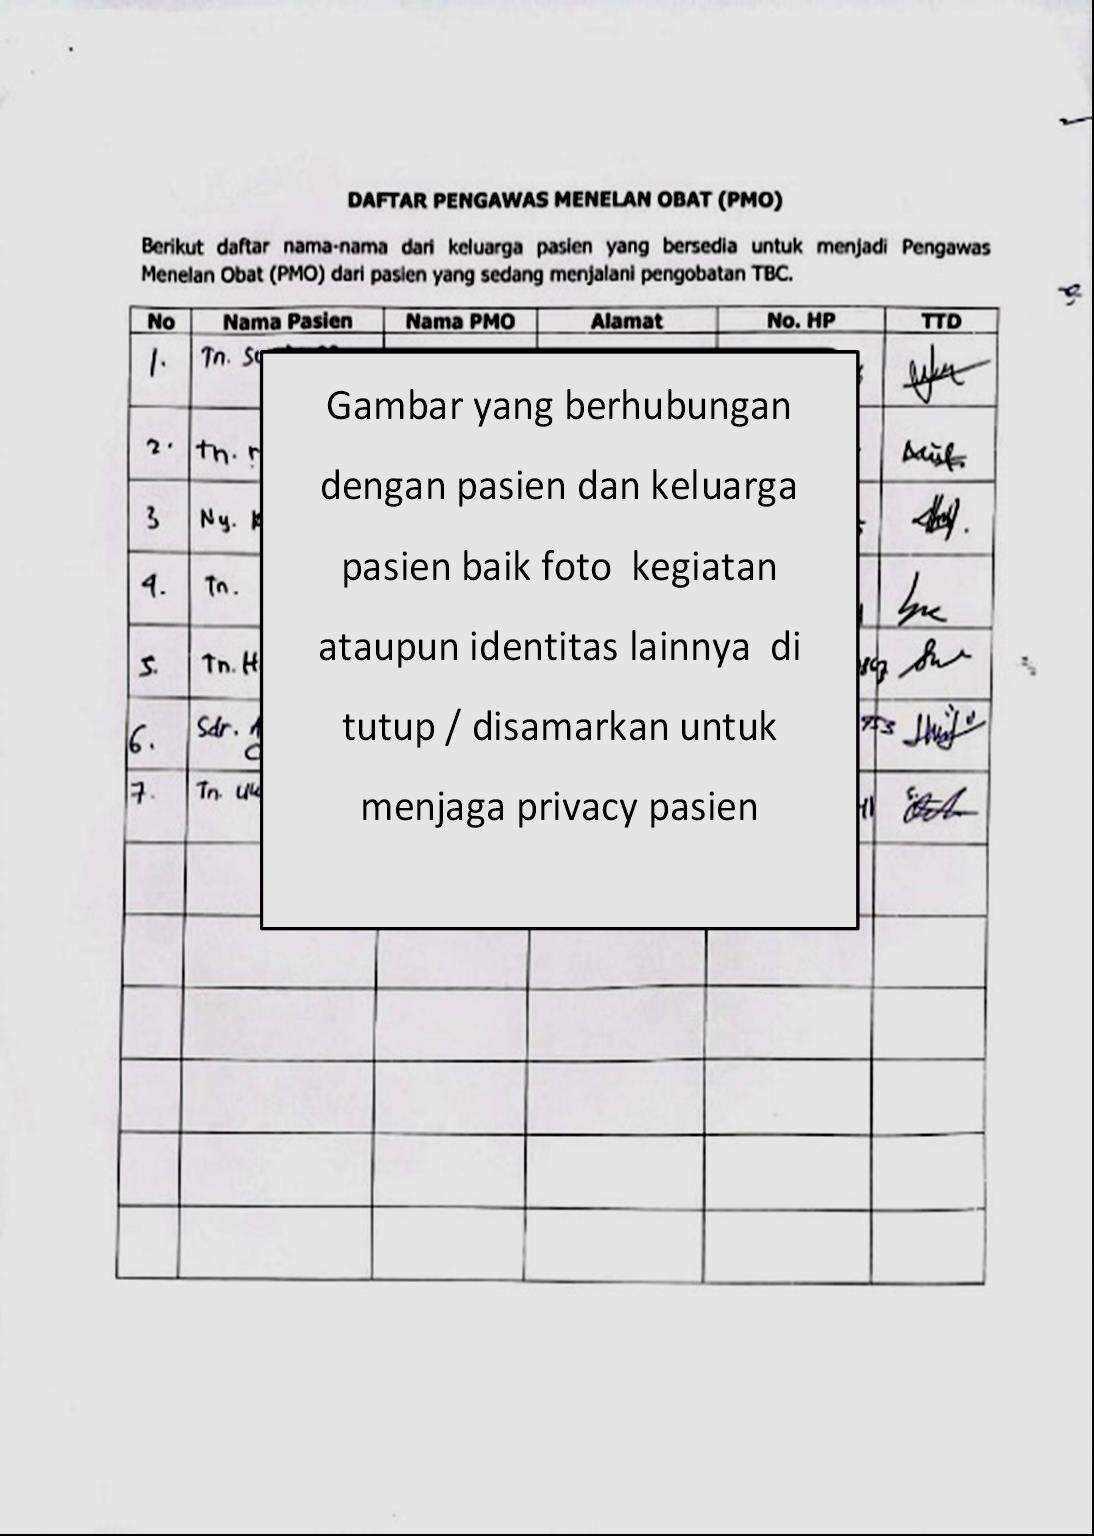 DAFTAR PENGAWAS MENELAN OBAT (PMO)
Berikut daftar nama-nama dari keluarga pasien yang bersedia untuk menjadi Pengawas
Menelan Obat (PMO) dari pasien yang sedang menjalani pengobatan TBC.
No Nama Pasien Nama PMO Alamat No. HP TTD
1. Tn.
2. Tn.
3 Ny.
4. Tn.
5. Tn. H
6. Sdr. 753
7. Tn.
Gambar yang berhubungan
dengan pasien dan keluarga
pasien baik foto kegiatan
ataupun identitas lainnya di
tutup / disamarkan untuk
menjaga privacy pasien